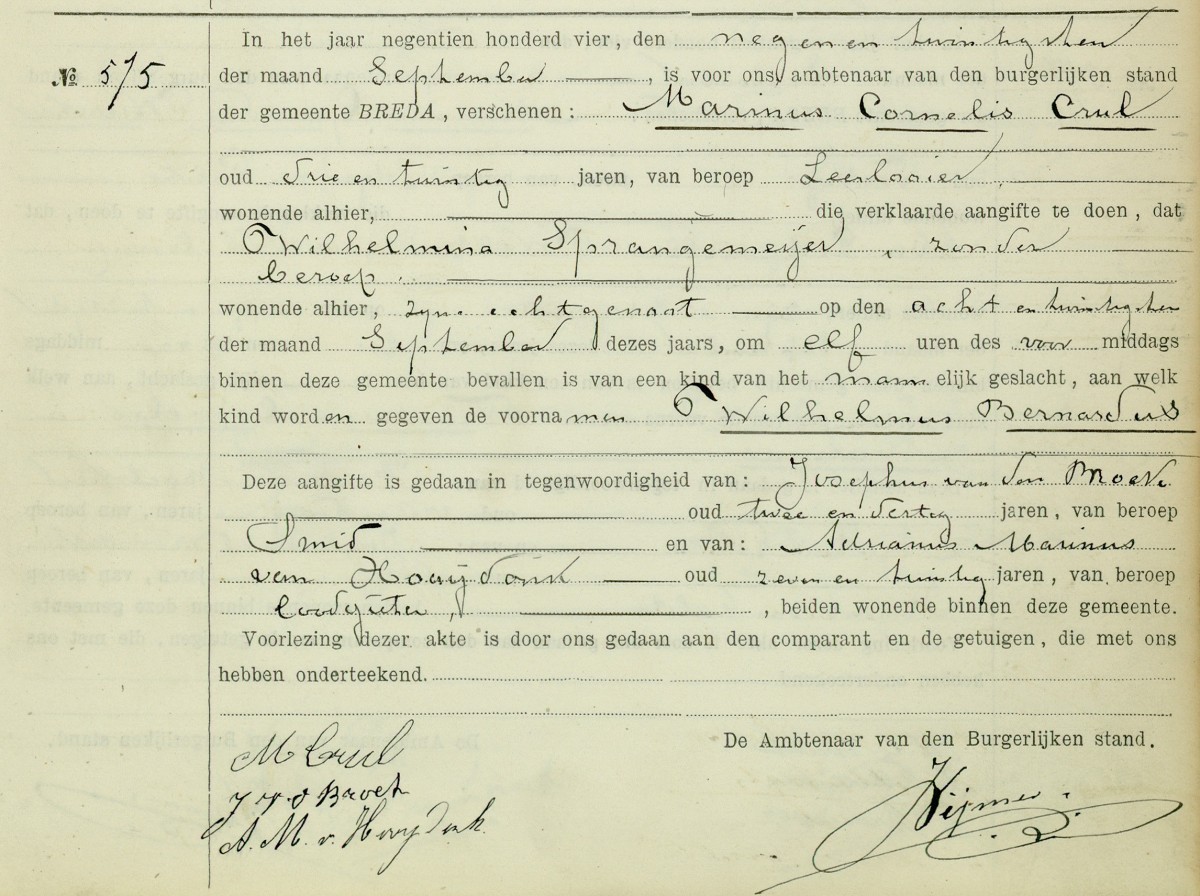 In het jaar negentien honderd vier, den negen en twintigsten
№ 575
der maand September, is voor ons, ambtenaar van den burgerlijken stand
der gemeente BREDA, verschenen: Marinus Cornelis Crul
oud drie en twintig jaren, van beroep Leerlooier,
wonende alhier, die verklaarde aangifte te doen, dat
Wilhelmina Sprangemeijer, zonder
beroep
wonende alhier, zijne echtgenoot op den acht en twintigsten
der maand September dezes jaars, om elf uren des voor middags
binnen deze gemeente bevallen is van een kind van het mannelijk geslacht, aan welk
kind worden gegeven de voornamen Wilhelmus Bernardus
Deze aangifte is gedaan in tegenwoordigheid van: Josephus van den
oud twee en dertig jaren, van beroep
Smid en van: Adrianus Marinus
van Hooijdonk oud zeven en twintig jaren, van beroep
Loodgieter, beiden wonende binnen deze gemeente.
Voorlezing dezer akte is door ons gedaan aan den comparant en de getuigen, die met ons
hebben onderteekend.
De Ambtenaar van den Burgerlijken stand.
M Crul
A. M. v. Hooijdonk